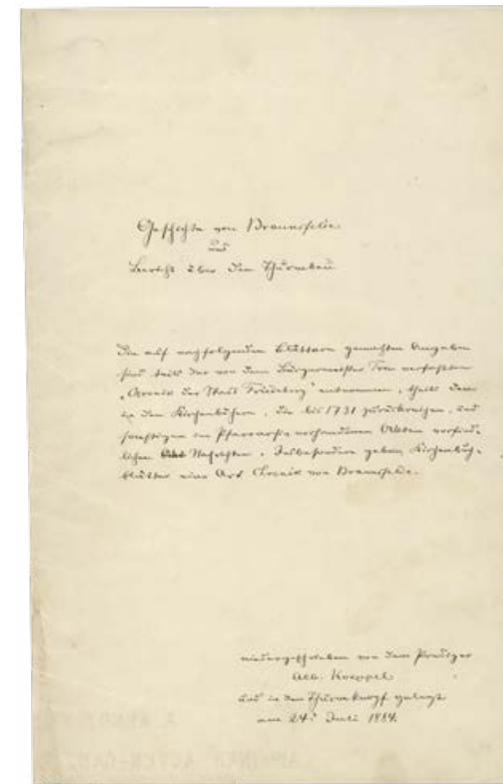 Geschichte von Braunsfelde
und
Bericht über den Thurmbau
Die auf nachfolgenden Blättern gemachten Angaben
sind teils der von dem Bürgermeister Treu verfaßten
„Chronik der Stadt Friedeberg" entnommen, theils den
in den Kirchenbüchern, die bis 1731 zurückreichen, und
sonstigen im Pfarrarchiv vorhandenen Akten vorfind-
lichen Nachrichten. Insbesondere geben Kirchenbuch-
blätter eine Art Chronik von Braunsfelde.
niedergeschrieben von dem Prediger
Alb. Koeppel
und in den Thurmknopf gelegt
am 24. Juli 1884.